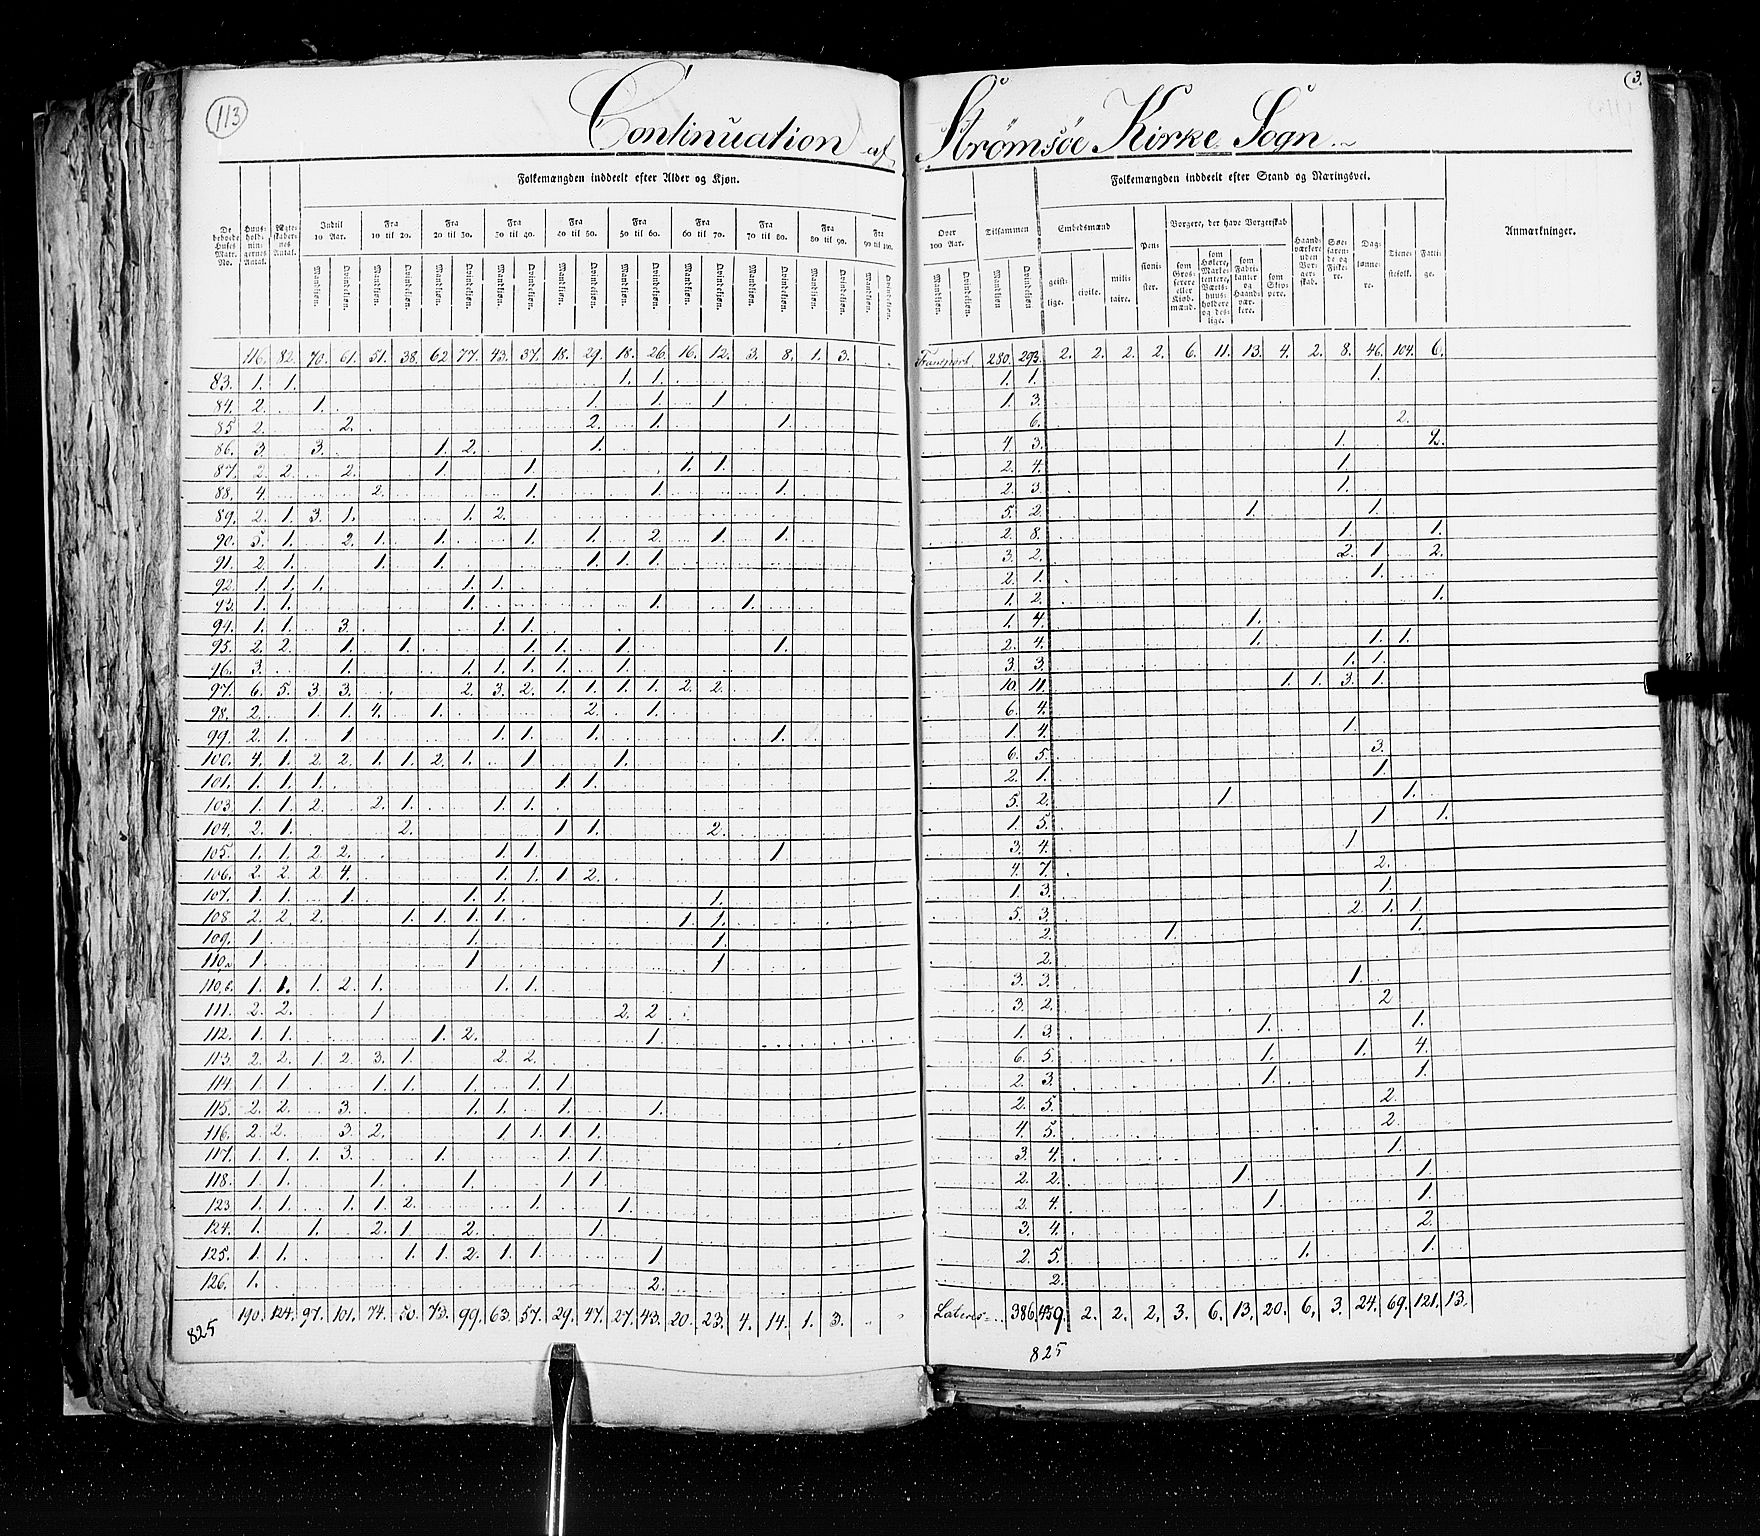 113
3.
Continuation af Strømsøe Kirke Sogn.
Folkemængden inddeelt efter Alder og Kjøn.
Folkemængden inddeelt efter Stand og Næringsvei.
De beboede Huses Matr. No.
Huusholdningernes Antal.
Ægteskabernes Antal.
Indtil 10 Aar.
Fra 10 til 20.
Fra 20 til 30.
Fra 30 til 40.
Fra 40 til 50.
Fra 50 til 60.
Fra 60 til 70.
Fra 70 til 80.
Fra 80 til 90.
Fra 90 til 100.
Over 100 Aar.
Tilsammen
Embedsmænd
Pensionister.
Borgere, der have Borgerskab
Haandværkere uden Borgerskab.
Søefarende og Fiskere.
Daglønnere.
Tienestefolk.
Fattige.
Anmærkninger.
Mandkiøn. Qvindekiøn.
geistlige. civile. militaire.
som Grosserere eller Kiøbmænd.
som Høkere, Marketentere, Værtshuusholdere og deslige.
som Fabrikanter og Haandværkere.
som Skippere.
116. 82. 70. 61. 51. 38. 62. 77. 43. 37. 18. 29. 18. 26. 16. 12. 3. 8. 1. 3. Transport. 280. 293. 2. 2. 2. 2. 6. 11. 13. 4. 2. 8. 46. 104. 6.
83. 1. 1. 1. 1. 1. 1. 1.
84. 2. 1. 1. 1. 1. 1. 3.
85. 2. 2. 2. 1. 1. 6. 2.
86. 3. 3. 1. 2. 1. 4. 3. 1. 2.
87. 2. 2. 2. 1. 1. 1. 1. 2. 4. 1.
88. 4. 2. 1. 1. 1. 2. 3. 1.
89. 2. 1. 3. 1. 1. 2. 5. 2. 1. 1.
90. 5. 1. 2. 1. 1. 1. 1. 2. 1. 1. 2. 8. 1. 1.
91. 2. 1. 1. 1. 1. 1. 1. 3. 2. 2. 1. 2.
92. 1. 1. 1. 1. 1. 2. 1. 1.
93. 1. 1. 1. 1. 1. 1. 2. 1.
94. 1. 1. 3. 1. 1. 1. 4. 1.
95. 2. 2. 1. 1. 1. 1. 1. 1. 2. 4. 1. 1. 1.
96. 3. 1. 1. 1. 1. 1. 1. 3. 3. 1. 1.
97. 6. 5. 3. 3. 2. 3. 2. 1. 1. 1. 1. 2. 2. 10. 11. 1. 1. 3. 1.
98. 2. 1. 1. 4. 1. 2. 1. 6. 4.
99. 2. 1. 1. 1. 1. 1. 1. 1. 4. 1.
100. 4. 1. 2. 2. 1. 1. 2. 1. 1. 1. 6. 5. 3.
101. 1. 1. 1. 1. 1. 2. 1. 1.
103. 1. 1. 2. 2. 1. 1. 1. 5. 2. 1. 1.
104. 2. 1. 2. 1. 1. 2. 1. 5. 1. 1.
105. 1. 1. 2. 2. 1. 1. 1. 3. 4. 1
106. 2. 2. 2 4. 1. 1. 1 2. 4. 7. 2.
107. 1. 1. 1. 1. 1. 1. 1. 3. 1.
108 2. 2. 2. 1. 1. 1. 1. 1. 1. 5. 3. 2. 1. 1.
109. 1. 1. 1. 2. 1. 1.
110.a 1. 1 1 2.
110.b. 1. 1. 1. 2. 1. 1. 1. 3. 3. 1.
111. 2. 2. 1 2. 2 3. 2. 2
112. 1. 1. 1. 2. 1. 1. 3. 1. 1.
113. 2. 2. 1. 2. 3. 1. 2. 2. 6. 5. 1. 1. 4.
114. 1. 1. 1. 1. 1. 1. 1. 2. 3. 1. 1.
115. 2. 2. 3. 1. 1. 1. 1. 2. 5. 2.
116. 2. 2. 3. 2. 1. 1. 1. 1. 4. 5. 2.
117. 1. 1. 1. 3. 1. 1. 1. 3. 4. 1.
118. 1. 1. 1. 1. 1. 1. 2. 2. 1. 1.
123 1. 1. 1. 1. 2. 1. 1. 2. 4. 1. 1.
124. 1. 1. 2. 1. 2. 1. 3. 4. 2.
125. 1. 1. 1. 1. 2. 1. 1. 1 2. 5. 1. 1.
126. 1. 2. 2.
190. 124. 97. 101. 74. 50. 73. 99. 63. 57. 29. 47. 27. 43. 20. 23. 4. 14. 1. 3. Lateres 386 439. 2. 2. 2. 3. 6. 13. 20. 6. 3. 24. 69. 121. 13.
825
825